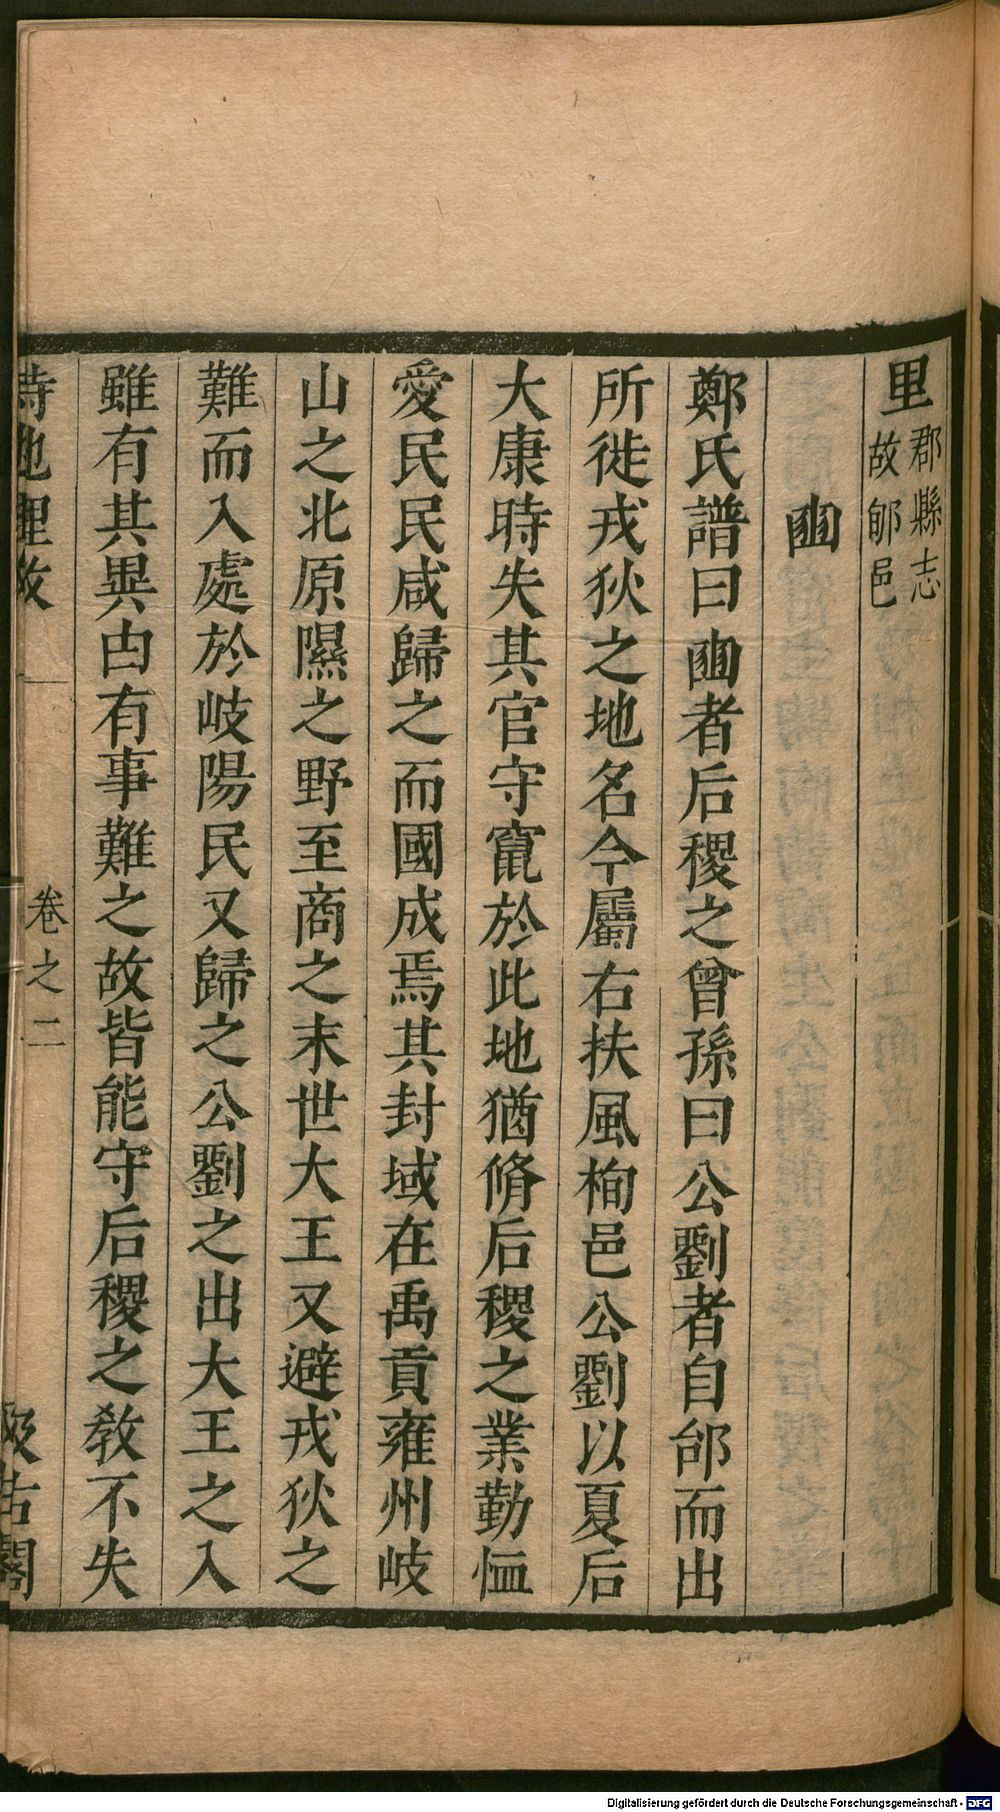 里郡縣志
故郇邑
豳
鄭氏譜曰豳者后稷之曾孫曰公劉者自邰而出
所徙戎狄之地名今屬右扶風栒邑公劉以夏后
大康時失其官守竄於此地猶脩后稷之業勤恤
愛民民咸歸之而國成焉其封域在禹貢雍州岐
山之北原隰之野至商之末世大王又避戎狄之
難而入處於岐陽民又歸之公劉之出大王之入
雖有其異由有事難之故皆能守后稷之教不失
詩地理攷 卷之二 汲古閣
Digitalisierung gefördert durch die Deutsche Forschungsgemeinschaft - DFG